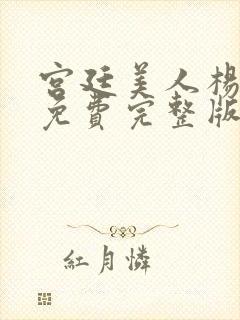 宮廷美人楊
免費完整版
紅月憐